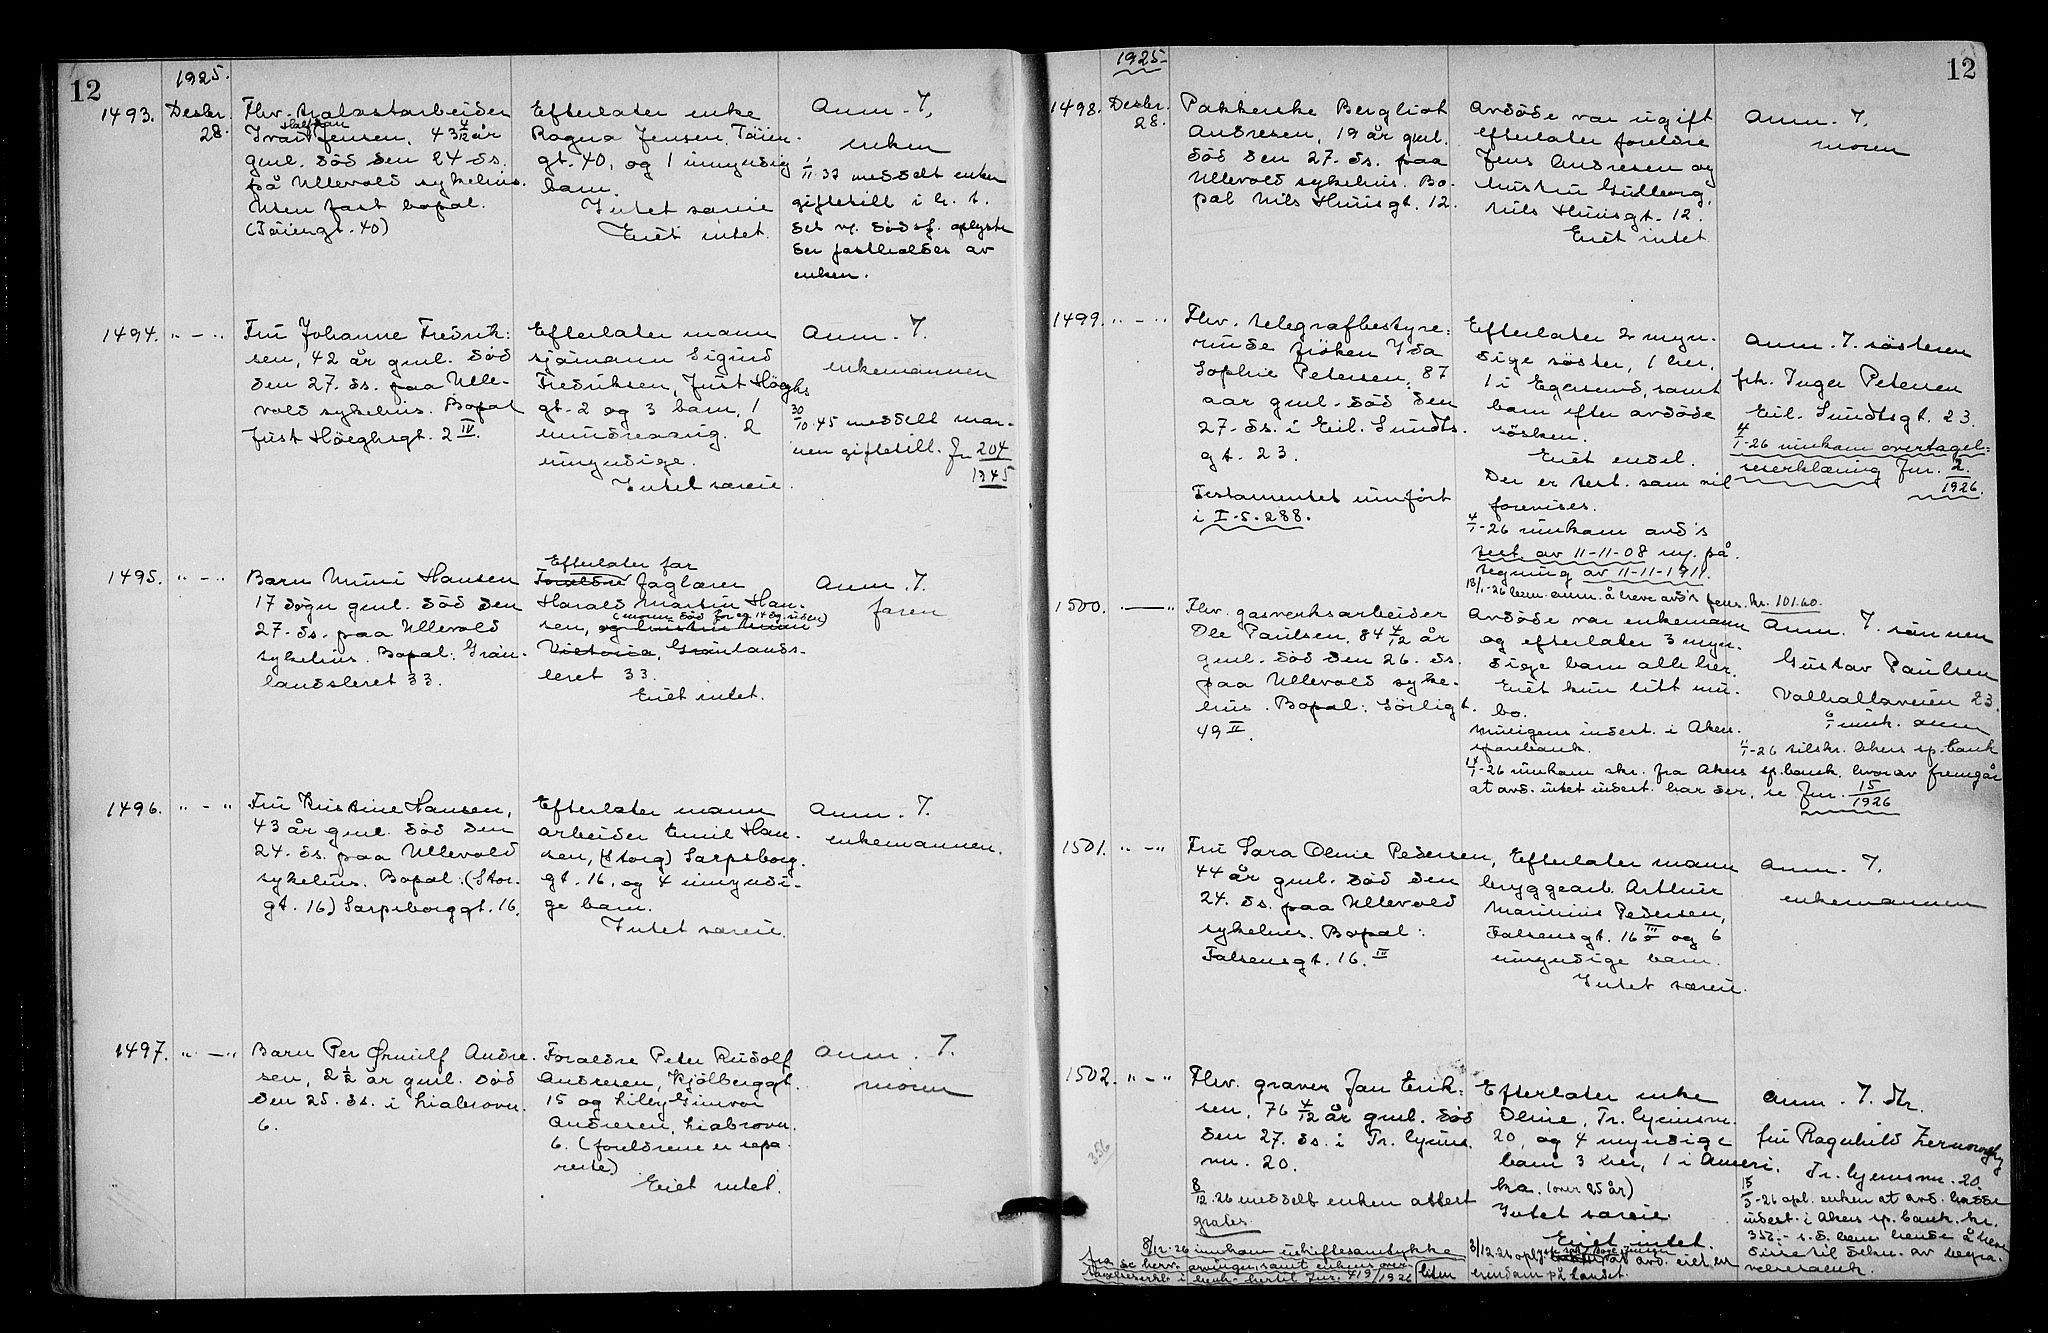 12
1925.
1493. Desbr. 28.
Fhv. ballastarbeider
Halfdan
Ivar Jensen, 43 4/12 år
gml. död den 24 ds.
på Ullevold sykehus.
Uten fast bopæl.
(Töiengt. 40)
Efterlater enke
Ragna Jensen, Töien-
gt. 40, og 1 umyndig
barn.
Intet særeie
Eiet intet.
Anm. T.
enken
1/11.37 meddelt enken
giftetill i h. t.
det v. dödsf. oplyste
der fastholdes av
enken.
1494. " - "
Fru Johanne Fredrik-
sen, 42 år gml. död
den 27. ds. paa Ulle-
vold sykehus. Bopæl
Just Höeghsgt. 2 IV.
Efterlater mann
sjömann Sigurd
Fredriksen, Just Höeghs
gt. 2 og 3 barn, 1
mindreaarig. 2
umyndige.
Intet særeie.
Anm. T.
enkemannen
30/10.45 meddelt man-
nen giftetill. Jr. 204/1945
1495. " - "
Barn Unni Hansen
17 dögn gml. död den
27. ds. paa Ullevold
sykehus. Bopæl: Grön-
landsleret 33.
Efterlater far
Foreldre faglærer
Harald Martin Han-
(moren död for ca 14 dg. siden)
sen, og hustru
Victoria, Grönlands-
leret 33.
Eiet intet.
Anm. T.
faren
1496. " - "
Fru Kristine Hansen,
43 år gml. död den
24. ds. paa Ullevold
sykehus. Bopæl: (Stor-
gt. 16) Sarpsborggt. 16.
Efterlater mann
arbeider Emil Han-
sen, (Storg) Sarpsborg.
gt. 16, og 4 umyndi-
ge barn.
Intet særeie.
Anm. T.
enkemannen.
1497. " - "
Barn Per Ørnulf Andre-
sen, 2 1/2 år gml. död
den 25. ds. i Liabrovn.
6.
Foreldre Peter Rudolf
Andresen, Kjölberggt.
15 og Lilly Gunvor
Andresen, Liabrovn.
6. (foreldrene er sepa-
rerte)
Eiet intet.
Anm. T.
moren
1925
12
1498. Desbr. 28.
Pakkerske Bergliot
Andresen, 19 år gml.
död den 27. ds. paa
Ullevold sykehus. Bo-
pæl Nils Huusgt. 12.
Avdöde var ugift
efterlater foreldre
Jens Andresen og
hustru Gudborg,
Nils Huusgt. 12.
Eiet intet
Anm. T.
moren
1499. " - "
Fhv. telegrafbestyre-
rinde fröken Ida
Sophie Petersen, 87
aar gml. död den
27. ds. i Eil. Sundts.
gt. 23.
Testamentet innfört
i I. S. 288.
Efterlater 2 myn-
dige söster, 1 her,
1 i Egersund, samt
barn efter avdöde
sösken.
Eiet endel.
Der er test. som vil
forevises.
4/1-26 innkom avd's
test. av 11-11-08 m. på-
tegning av 11-11-1911.
18/1-26 bem. anm. å heve avd's pens. kr. 101.60.
Anm. T. sösteren
frk. Inger Petersen
Eil. Sundtsgt. 23.
4/1-26 innkom overtagel-
seserklæring Jnr. 2/1926.
1500. " — "
Fhv. gasverksarbeider
Ole Paulsen, 84 4/12 år
gml. död den 26. ds.
paa Ullevold syke-
hus. Bopæl: Sörligt.
49 II.
Avdöde var enkemann
og efterlater 3 myn-
dige barn alle her.
Eiet kun litt inn-
bo.
Muligens indest. i Akers
sparebank.
14/1-26 innkom skr. fra Akers sp.bank, hvorav fremgår
at avd. intet indest. har der, se Jnr. 15/1926
Anm. T. sönnen
Gustav Paulsen
Valhallaveien 23.
6/1 innk. anm
4/1-26 tilskr. Akers sp.bank
1501. " - "
Fru Sara Oline Pedersen,
44 år gml. död den
24. ds. paa Ullevold
sykehus. Bopæl:
Falsensgt. 16. III
Efterlater mann
bryggearb. Arthur
Marinius Pedersen,
Falsensgt. 16 III og 6
umyndige barn.
Intet særeie.
Anm. T.
enkemannen
1502. " - "
Fhv. graver Jan Erik-
sen, 76 4/12 år gml. död
den 27. ds. i Tr. hjems
vn. 20.
8/12.26 meddelt enken attest
gratis.
356
8/12-26 innkom uskiftesamtykke
fra de herv. arvinger, samt enkens over
Efterlater enke
Oline, Tr. hjemsvn.
20, og 4 myndige
barn 3 her, 1 i Ameri-
ka. (over 25 år)
Intet særeie.
Eiet intet.
avd. eiet en
eiendom på landet.
Anm. T. dtr.
fru Ragnhild Zernowsky
Tr. hjemsvn. 20.
15/3-26 opl. enken at avd. hadde
indest. i Akers sp. bank kr.
356.- s. d. bem. hende å heve
disse til dekn. av begra-
velsesomk.